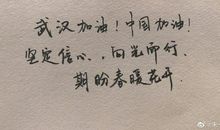 武汉加油！中国加油！
坚定信心，向光而行，
期盼春暖花开